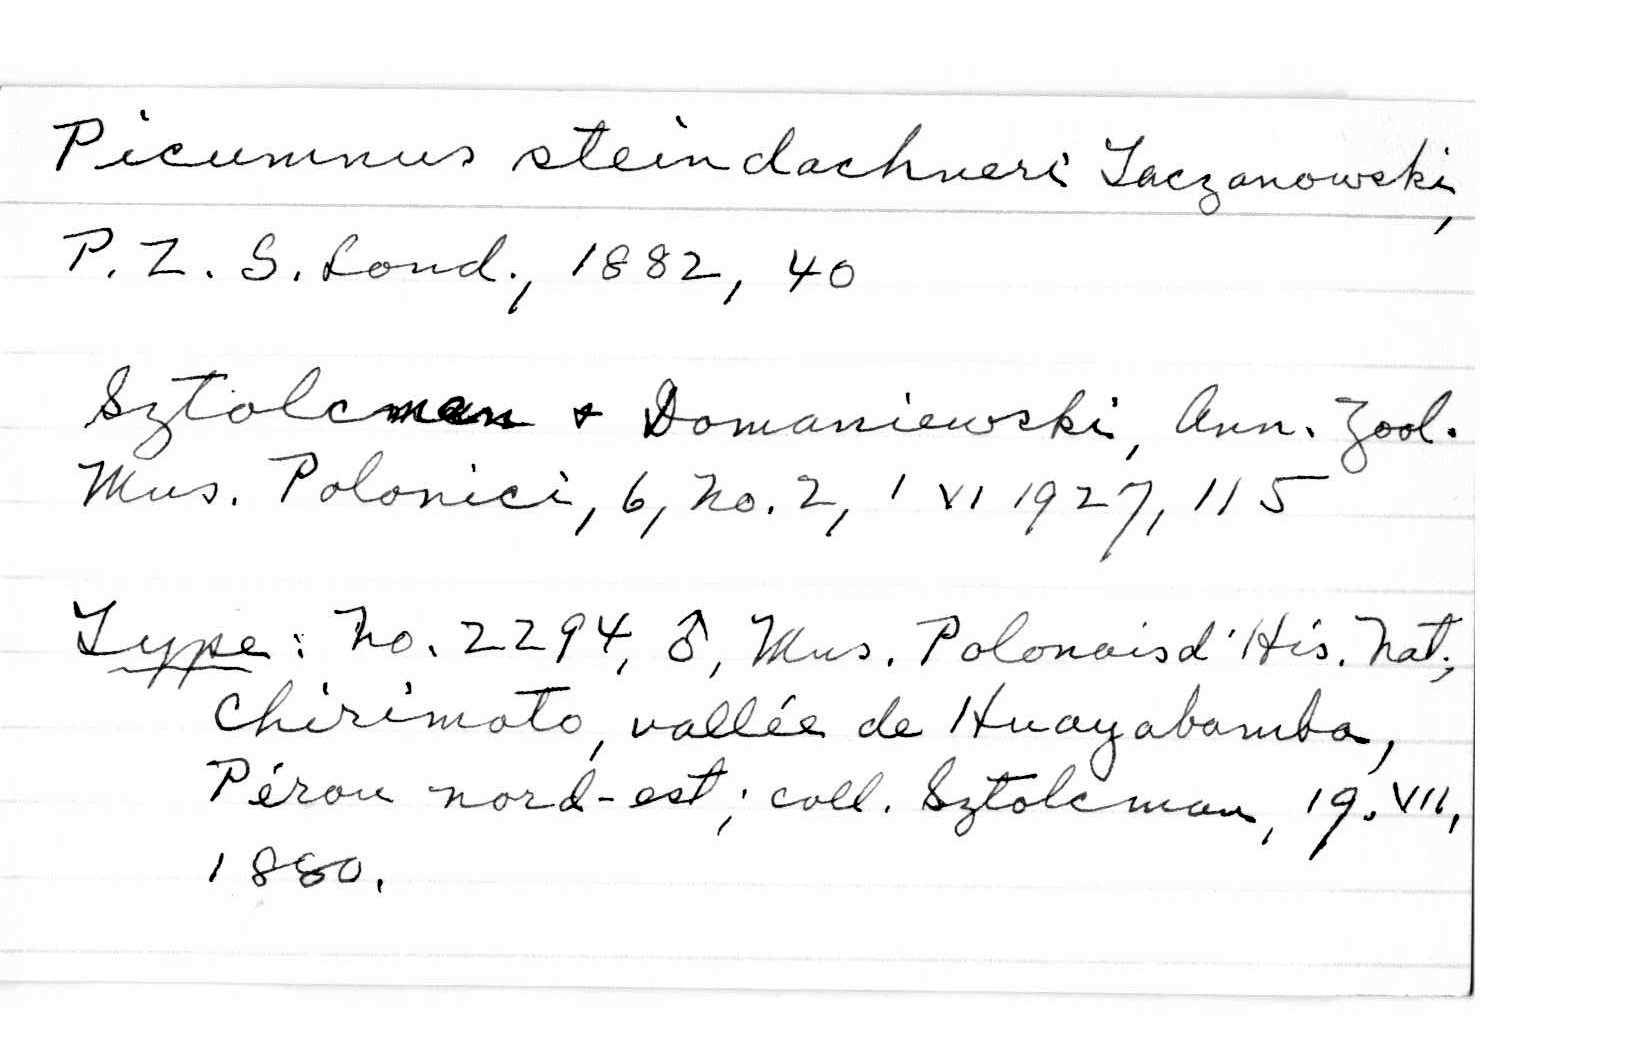 Picumnus steindachneri Taczanowski,
P. Z. S. Lond., 1882, 40
Sztolcman & Domaniewski, Ann. Zool.
Mus. Polonici, 6, No. 2, 1 VI 1927, 115
Type: No. 2294, ♂, Mus. Polonais d'His. Nat.;
Chirimoto, vallée de Huayabamba,
Pérou nord-est; coll. Sztolcman, 19. VII,
1880.